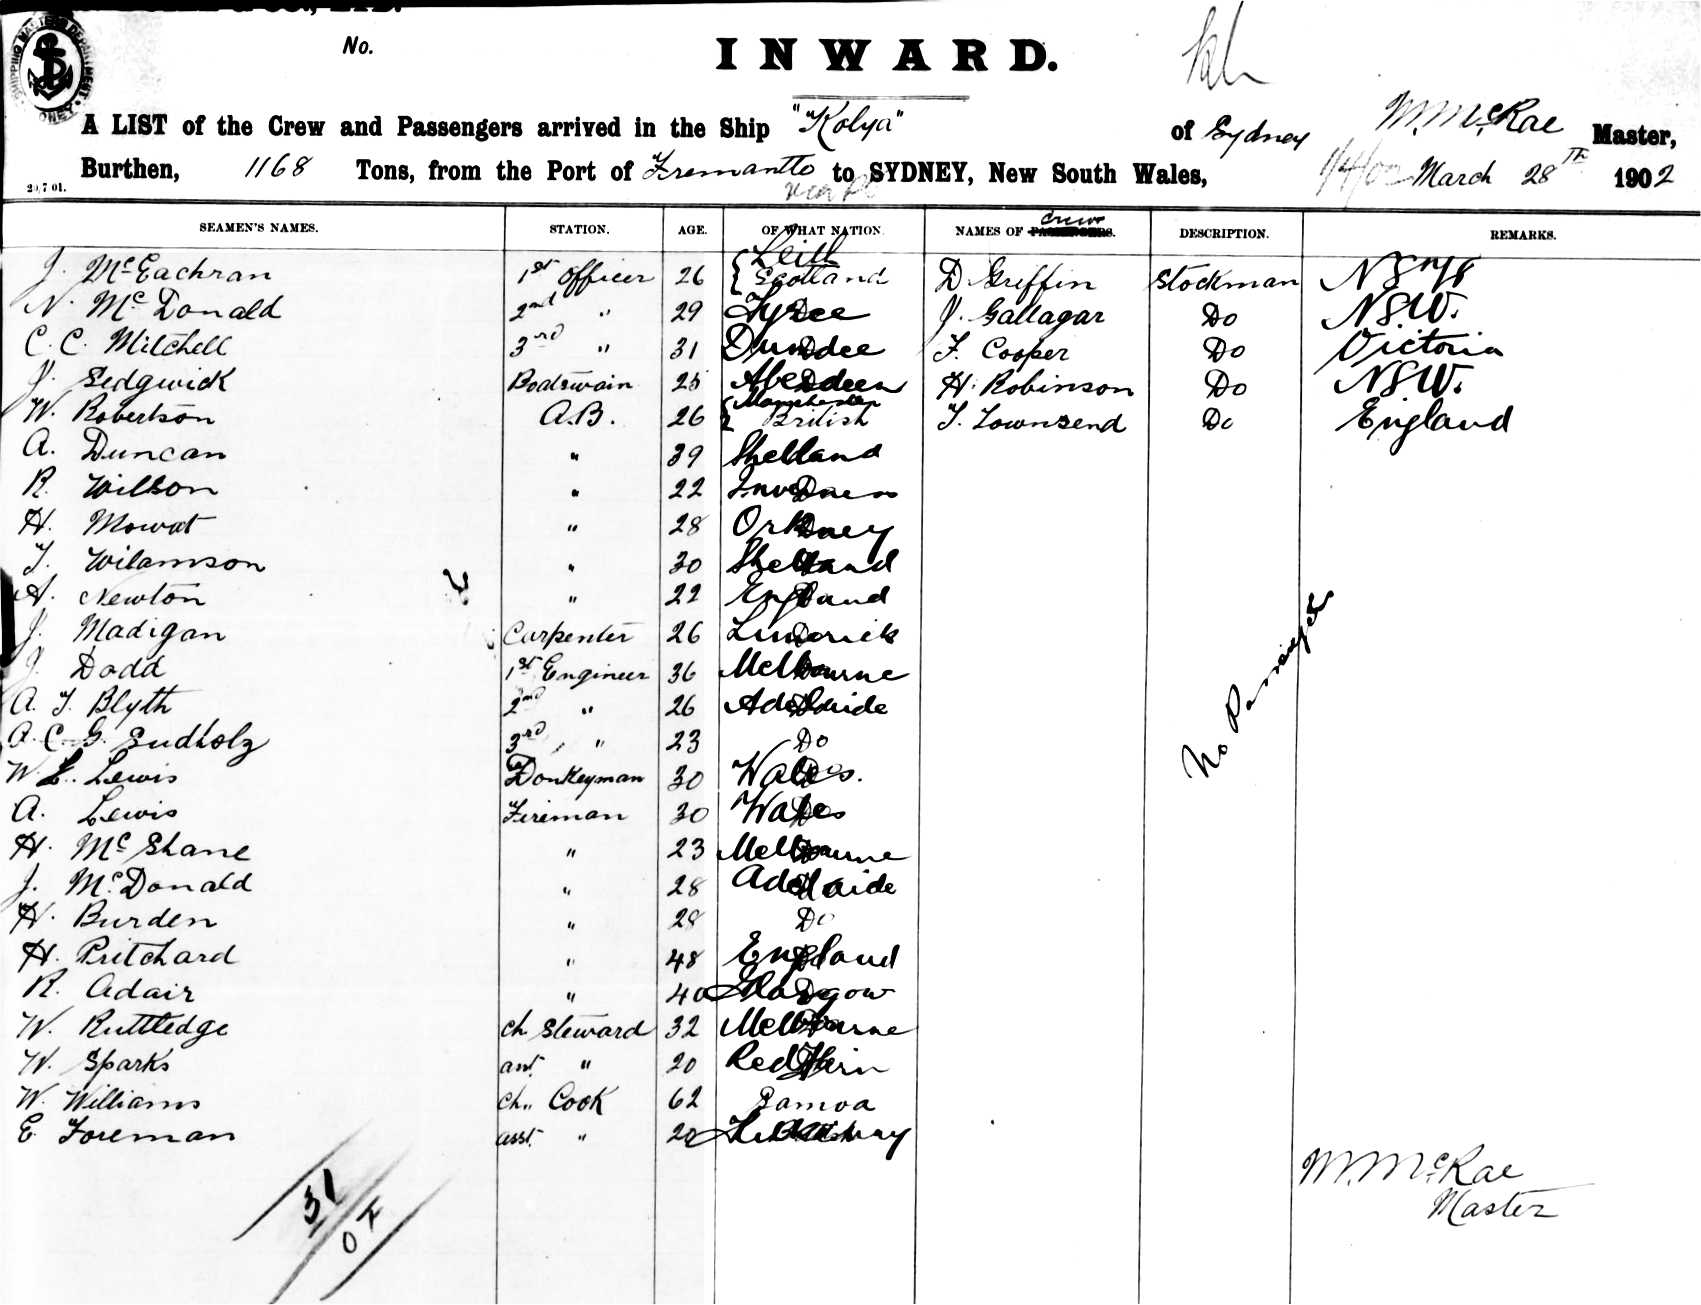 No.
INWARD.
SHIPPING MASTERS DEPARTMENT SYDNEY
A LIST of the Crew and Passengers arrived in the Ship "Kolya" of Sydney W. McRae Master,
Burthen, 1168 Tons, from the Port of Fremantle to SYDNEY, New South Wales, 1/4/02 March 28th 1902
20.7.01. via
SEAMEN'S NAMES. STATION. AGE. OF WHAT NATION. NAMES OF PASSENGERS. Crew DESCRIPTION. REMARKS.
J. McEachran 1st Officer 26 Leith Scotland D Griffin Stockman NSW
N. McDonald 2nd " 29 Tyree J. Gallagar Do NSW.
C. C. Mitchell 3rd " 31 Dundee F. Cooper Do Victoria
J. Sedgwick Boatswain 25 Aberdeen H. Robinson Do NSW.
W. Robertson A.B. 26 Manchester British T. Townsend Do England
A. Duncan " 39 Shetland
R. Wilson " 22 Inverness
H. Mowat " 28 Orkney
T. Wilamson " 30 Shetland
A. Newton " 22 England
J. Madigan Carpenter 26 Limerick
J. Dodd 1st Engineer 36 Melbourne
A. T. Blyth 2nd " 26 Adelaide
A. C. G. Sudholz 3rd " 23 Do
W. L. Lewis Donkeyman 30 Wales.
A. Lewis Fireman 30 Wales
H. McShane " 23 Melbourne
J. McDonald " 28 Adelaide
H. Burden " 28 Do
H. Pritchard " 48 England
R. Adair " 40 Glasgow
W. Ruttledge Ch Steward 32 Melbourne
W. Sparks asst. " 20 Redfern
W. Williams Ch.. Cook 62 Samoa
E Foreman asst. " 20
No Passengers
W. McRae
Master
31